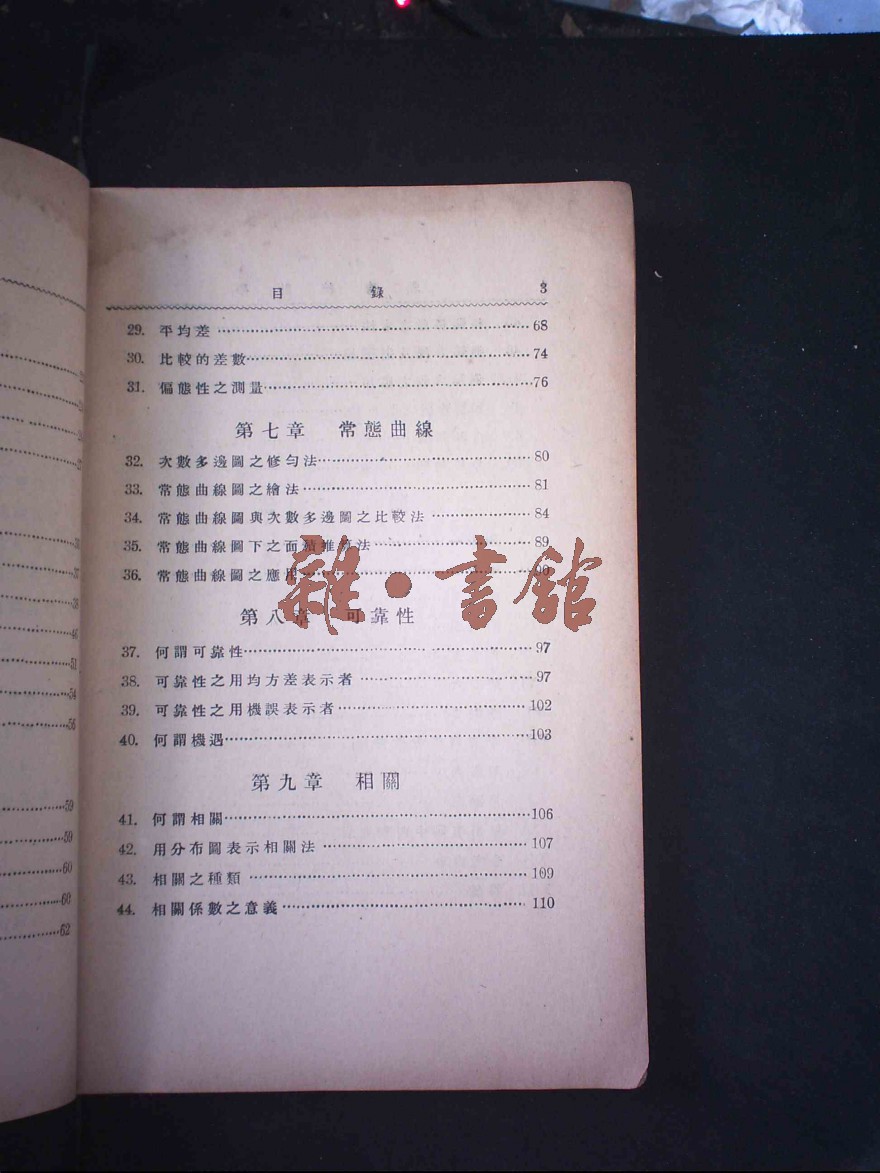 目 錄 3
29. 平均差 68
30. 比較的差數 74
31. 偏態性之測量 76
第七章 常態曲線
32. 次數多邊圖之修勻法 80
33. 常態曲線圖之繪法 81
34. 常態曲線圖與次數多邊圖之比較法 84
35. 常態曲線圖下之面積推算法 89
36. 常態曲線圖之應用
第八章 可靠性
37. 何謂可靠性 97
38. 可靠性之用均方差表示者 97
39. 可靠性之用機誤表示者 102
40. 何謂機遇 103
第九章 相關
41. 何謂相關 106
42. 用分布圖表示相關法 107
43. 相關之種類 109
44. 相關係數之意義 110
雜·書館
51
54
56
59
59
60
60
62